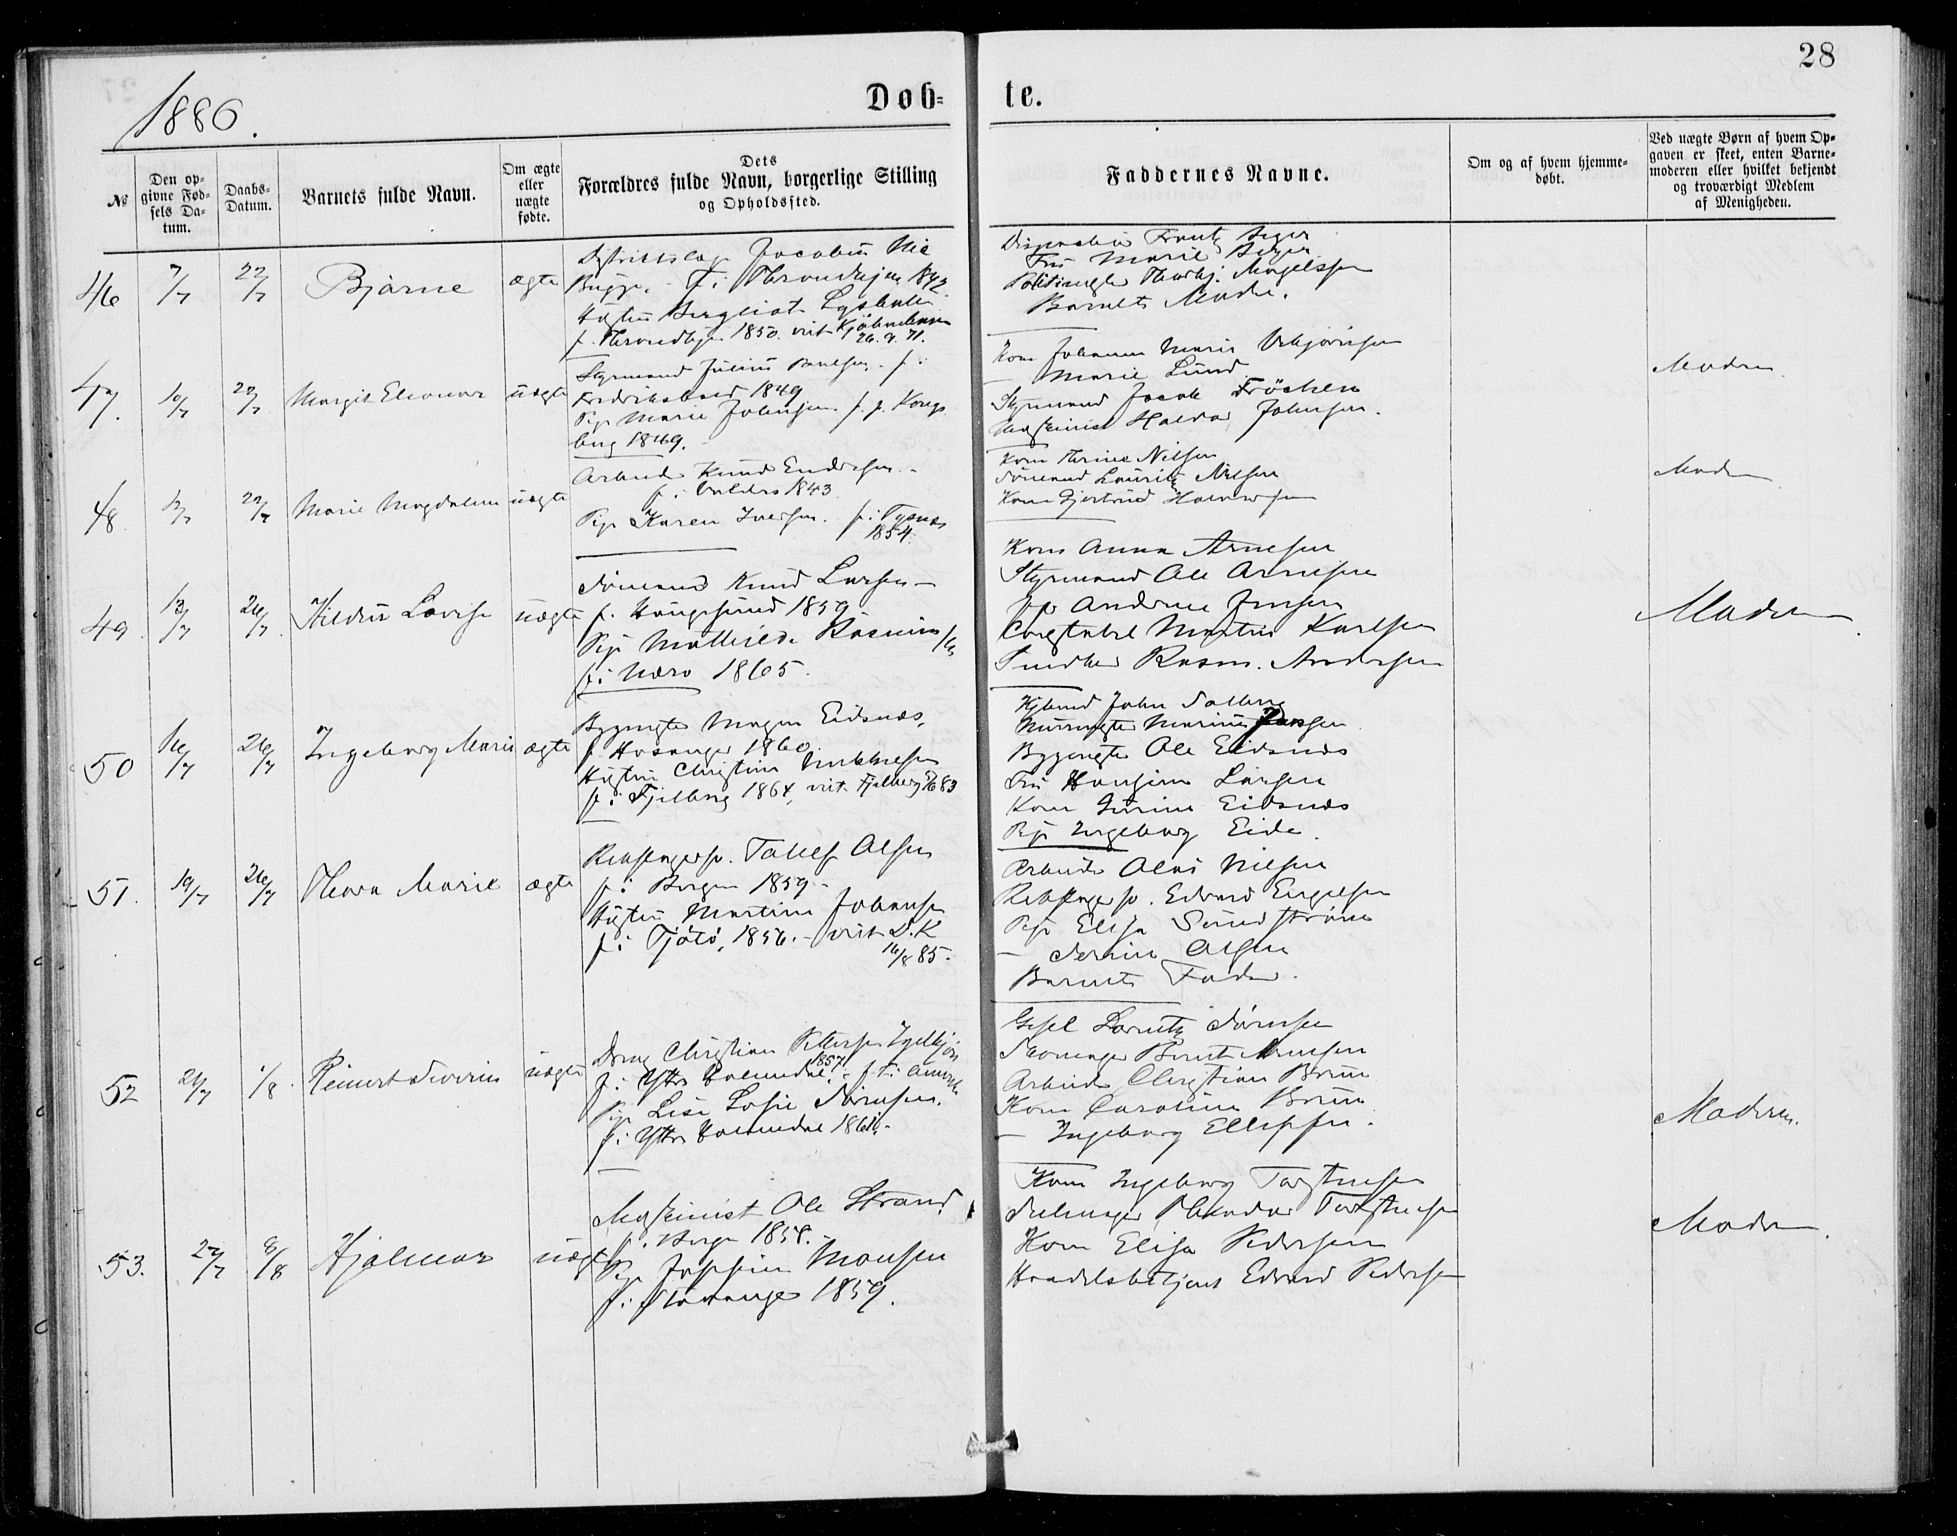 28
1886.
Døb-
te.
№
Den op-
givne Fød-
sels Da-
tum.
Daabs-
Datum.
Barnets fulde Navn.
Om ægte
eller
uægte
fødte.
Dets
Forældres fulde Navn, borgerlige Stilling
og Opholdssted.
Faddernes Navne.
Om og af hvem hjemme-
døbt.
Ved uægte Børn af hvem Op-
gaven er skeet, enten Barne-
moderen eller hvilket bekjendt
og troværdigt Medlem
af Menigheden.
46
7/7
22/7
Bjarne
ægte
Jacobus
Bugge. f. i Throndhjem 1842.
Hustru Bergliot Lysholm
f. Throndhjem 1850. viet Kjøbenhavn
26. 9. 71.
Frantz Beyer
Fru Marie Beyer
Mogelssen
Barnets Moder.
47.
10/7
22/7
Margit Eleonor
uægte
Styrmand Julius f. i
Fredrikshald 1849
Pige Marie Johnsen f. i Kongs
berg 1849.
Kone Johanne Marie
— Marie Lund
Styrmand Jacob Frøchen
Maskinist Haldor Johnsen.
Moder
48.
22/7
Marie Magdalene
uægte
Arbeider Knud Endresen
f. i Valders 1843
Pige Karen Iversen. f. i Tysnæs
1854.
Kone Therine Nilsen
Sømand Lauritz Nilsen
Kone Gjertrud Halvorsen
Moder
49.
13/7
26/7
Hildur Lovise
uægte
Sømand Knud Larsen —
f. Haugesund 1859
Pige Mathilde Rasmussen
f. i Nærø 1865.
Kone Anna Arnesen
Styrmand Ole Arnesen
Pige Andrea Jensen
Constabel Martin Karlsen
Snedker Rasm. Andersen
Moder
50
16/7
26/7
Ingeborg Marie
ægte
Bygmgter Mogen Eidsnæs,
f. Hosanger 1860
Hustru Christine
f. i Fjelberg 1864, viet Fjelberg 83
John Solberg
Murmgter Marius Jansen
Bygmgter Ole Eidsnæs
Fru Hansine Larsen
Kone Gurine Eidsnæs
Pige Ingeborg Eide.
51.
19/7
26/7
Thora Marie
ægte
Rebslagersv. Tollef Olsen
f. i Bergen 1859 -
Hustru Martine Johansen
f. i Tjøtø, 1856. - viet D.K
16/8 85.
Arbeider Olai Nilsen
Rebslagersv. Edvard Engelsen
Pige Elisa Sundstrøm
— Serine Olsen
Barnets Fader.
52
24/7
1/8.
Reinert Severin
uægte
Dreng Christian Pettersen
f. i Ytre Holmedal 1857. f. t. i Amerika
Pige Lise Sofie Sørensen.
f. i Ytre Holmedal 1861.-
Gesel Lorentz Sørensen
Bernt Arnesen
Arbeider Christian Brun
Kone Caroline Brun
— Ingeborg Ellefsen.
Moderen.
53.
22/7
8/8
Hjalmar
uægte
Maskinist Ole Strand
f. i Bergen 1858.
Pige Josefine Monsen
f. i Stavanger 1859.
Kone Ingeborg Torstensen
Theodor Torstensen
Kone Elisa Pedersen
Handelsbetjent Edvard Pedersen
Moder